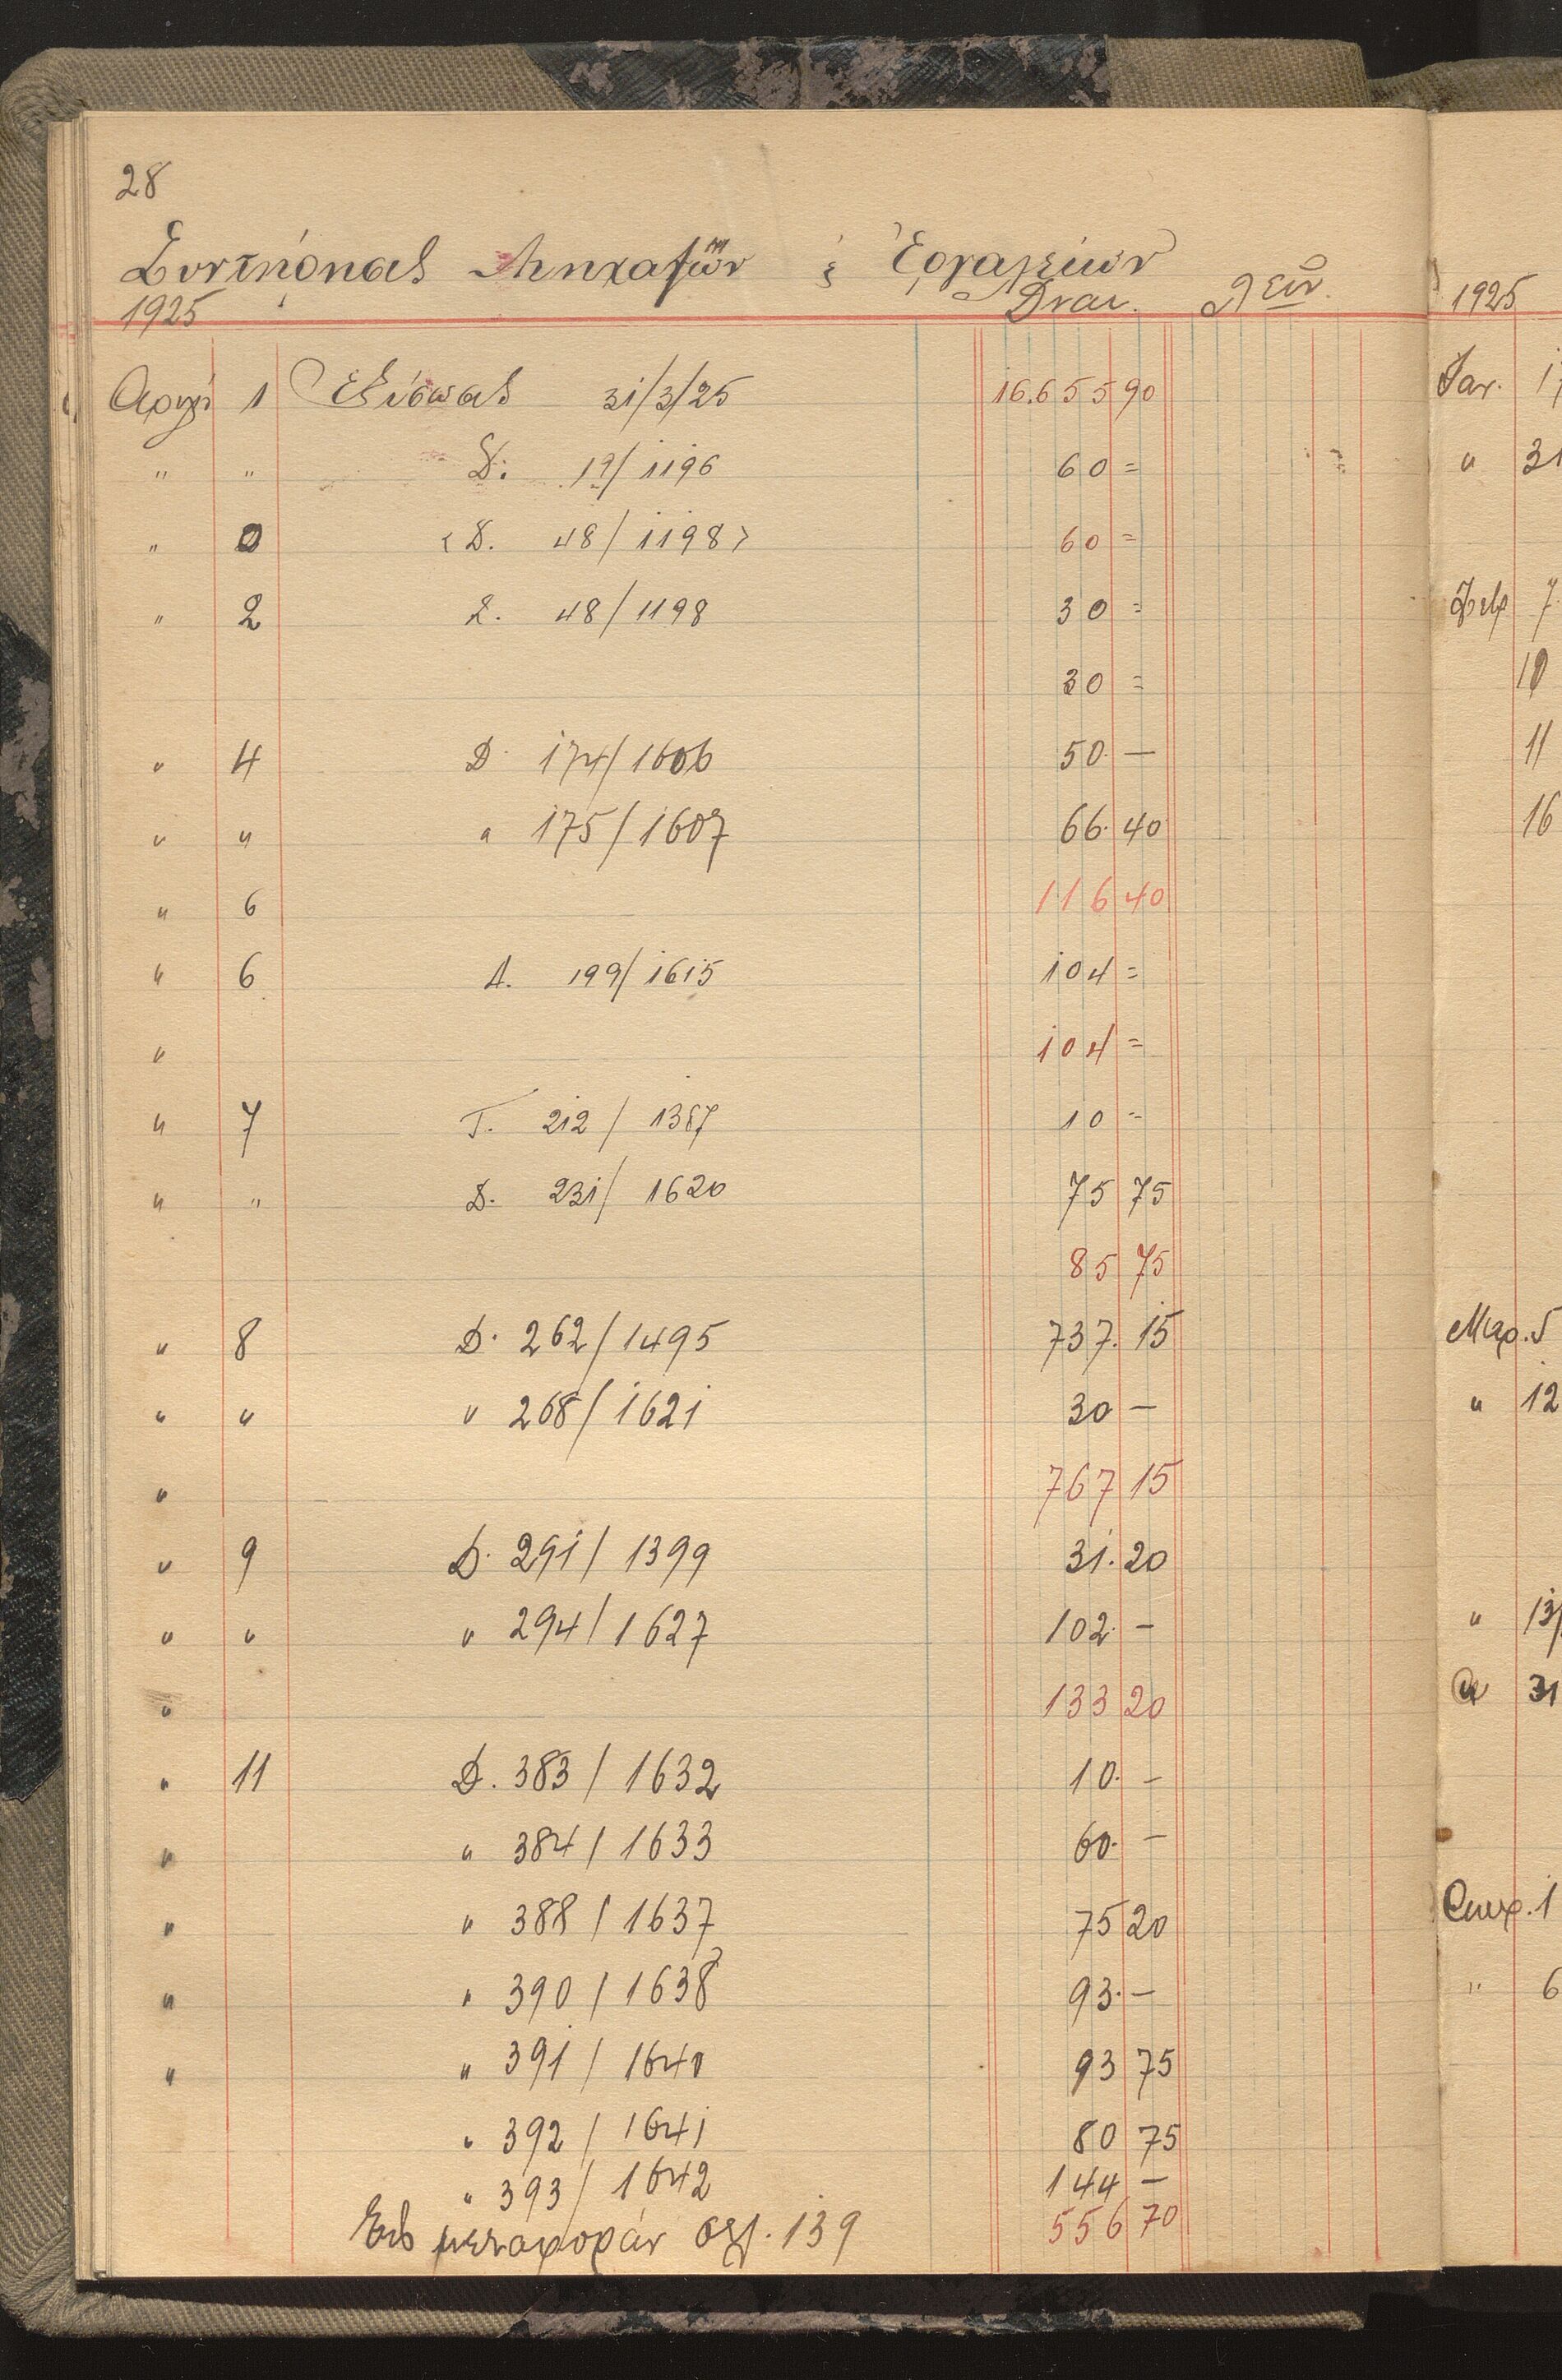 28
Συντήρησις Μηχα/των & Ἐργαλείων
1925 Δραχ. Λεπ.
Απρίλ 1 Εξίσωσις 31/3/25 16.655 90
" " Δ. 19/1196 60 =
" 0 < Δ. 48/1198 > 60 =
" 2 Δ. 48/1198 30 =
30 =
" 4 D. 174/1606 50. —
" " " 175/1607 66. 40
" 6 116 40
" 6 Δ. 199/1615 104 =
" 104 =
" 7 T. 212/1387 10 =
" " Δ. 231/1620 75 75
85 75
" 8 D. 262/1495 737. 15
" " " 268/1621 30 —
" 767 15
" 9 D. 291/1399 31. 20
" " " 294/1627 102. —
" 133 20
" 11 D. 383/1632 10. —
" " 384/1633 60. —
" " 388/1637 75 20
" " 390/1638 93. —
" " 391/1640 93 75
" 392/1641 80 75
" 393/1642 144 —
Εις μεταφοράν σελ. 139 556 70
1925
Ιαν. 17
" 31
Φεβ 7
10
11
16
Μαρ. 5
" 12
" 13
" 31
Απρ. 1
" 6